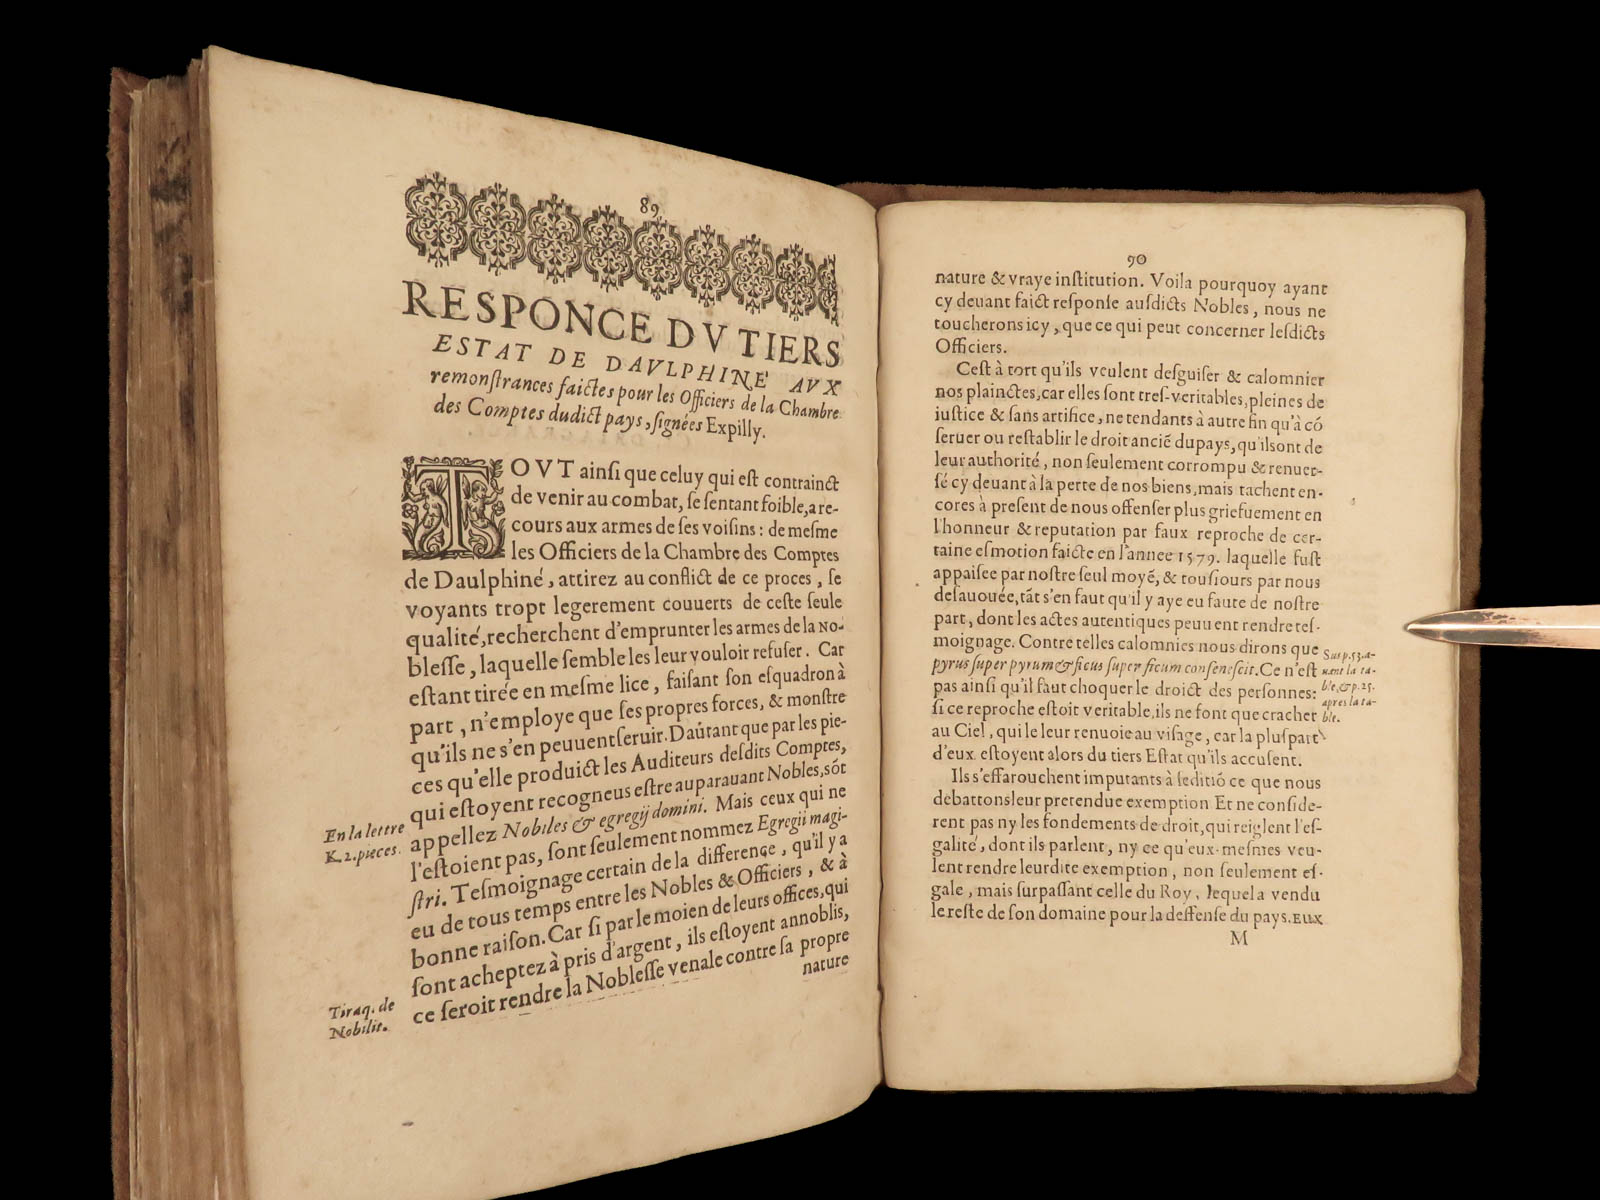 89
RESPONCE DV TIERS
ESTAT DE DAVLPHINE' AVX
remonſtrances faictes pour les Officiers de la Chambre
des Comptes dudict pays, ſignées Expilly.
TOVT ainſi que celuy qui eſt contrainct
de venir au combat, ſe ſentant foible, a re-
cours aux armes de ſes voiſins : de meſme
les Officiers de la Chambre des Comptes
de Daulphiné, attirez au conflict de ce proces, ſe
voyants tropt legerement couuerts de ceſte ſeule
qualité, recherchent d'emprunter les armes de la No-
bleſſe, laquelle ſemble les leur vouloir refuſer. Car
eſtant tirée en meſme lice, faiſant ſon eſquadron à
part, n'employe que ſes propres forces, & monſtre
qu'ils ne s'en peuuent ſeruir. Daūtant que par les pie-
ces qu'elle produict les Auditeurs deſdits Comptes,
qui eſtoyent recogneus eſtre auparauant Nobles, sōt
appellez Nobiles & egregij domini. Mais ceux qui ne
l'eſtoient pas, ſont ſeulement nommez Egregii magi-
ſtri. Teſmoignage certain de la difference, qu'il y a
eu de tous temps entre les Nobles & Officiers, & à
bonne raiſon. Car ſi par le moien de leurs offices, qui
ſont acheptez à pris d'argent, ils eſtoyent annoblis,
ce ſeroit rendre la Nobleſſe venale contre ſa propre
nature
En la lettre
K. 2. pieces.
Tiraq. de
Nobilit.
90
nature & vraye inſtitution. Voila pourquoy ayant
cy deuant faict reſponſe auſdicts Nobles, nous ne
toucherons icy, que ce qui peut concerner leſdicts
Officiers.
Ceſt à tort qu'ils veulent deſguiſer & calomnier
nos plainctes, car elles ſont treſ-veritables, pleines de
iuſtice & ſans artifice, ne tendants à autre fin qu'à cō
ſeruer ou reſtablir le droit anciē du pays, qu'ils ont de
leur authorité, non ſeulement corrompu & renuer-
ſé cy deuant à la perte de nos biens, mais tachent en-
cores à preſent de nous offenſer plus griefuement en
l'honneur & reputation par faux reproche de cer-
taine eſmotion faicte en l'annee 1579. laquelle fuſt
appaiſee par noſtre ſeul moyē, & touſiours par nous
deſauouée, tāt s'en faut qu'il y aye eu faute de noſtre
part, dont les actes autentiques peuuent rendre teſ-
moignage. Contre telles calomnies nous dirons que
pyrus ſuper pyrum & ficus ſuper ficum conſeneſcit. Ce n'eſt
pas ainſi qu'il faut choquer le droict des perſonnes:
ſi ce reproche eſtoit veritable, ils ne font que cracher
au Ciel, qui le leur renuoie au viſage, car la pluſpart
d'eux eſtoyent alors du tiers Eſtat qu'ils accuſent.
Ils s'effarouchent imputants à ſeditiō ce que nous
debattons leur pretendue exemption Et ne conſide-
rent pas ny les fondements de droit, qui reiglent l'eſ-
galité, dont ils parlent, ny ce qu'eux-meſmes veu-
lent rendre leurdite exemption, non ſeulement eſ-
gale, mais ſurpaſſant celle du Roy, lequel a vendu
le reſte de ſon domaine pour la deffenſe du pays. Eux
M
Sus p. 53. a-
uant la ta-
ble, & p. 25.
apres la ta-
ble.